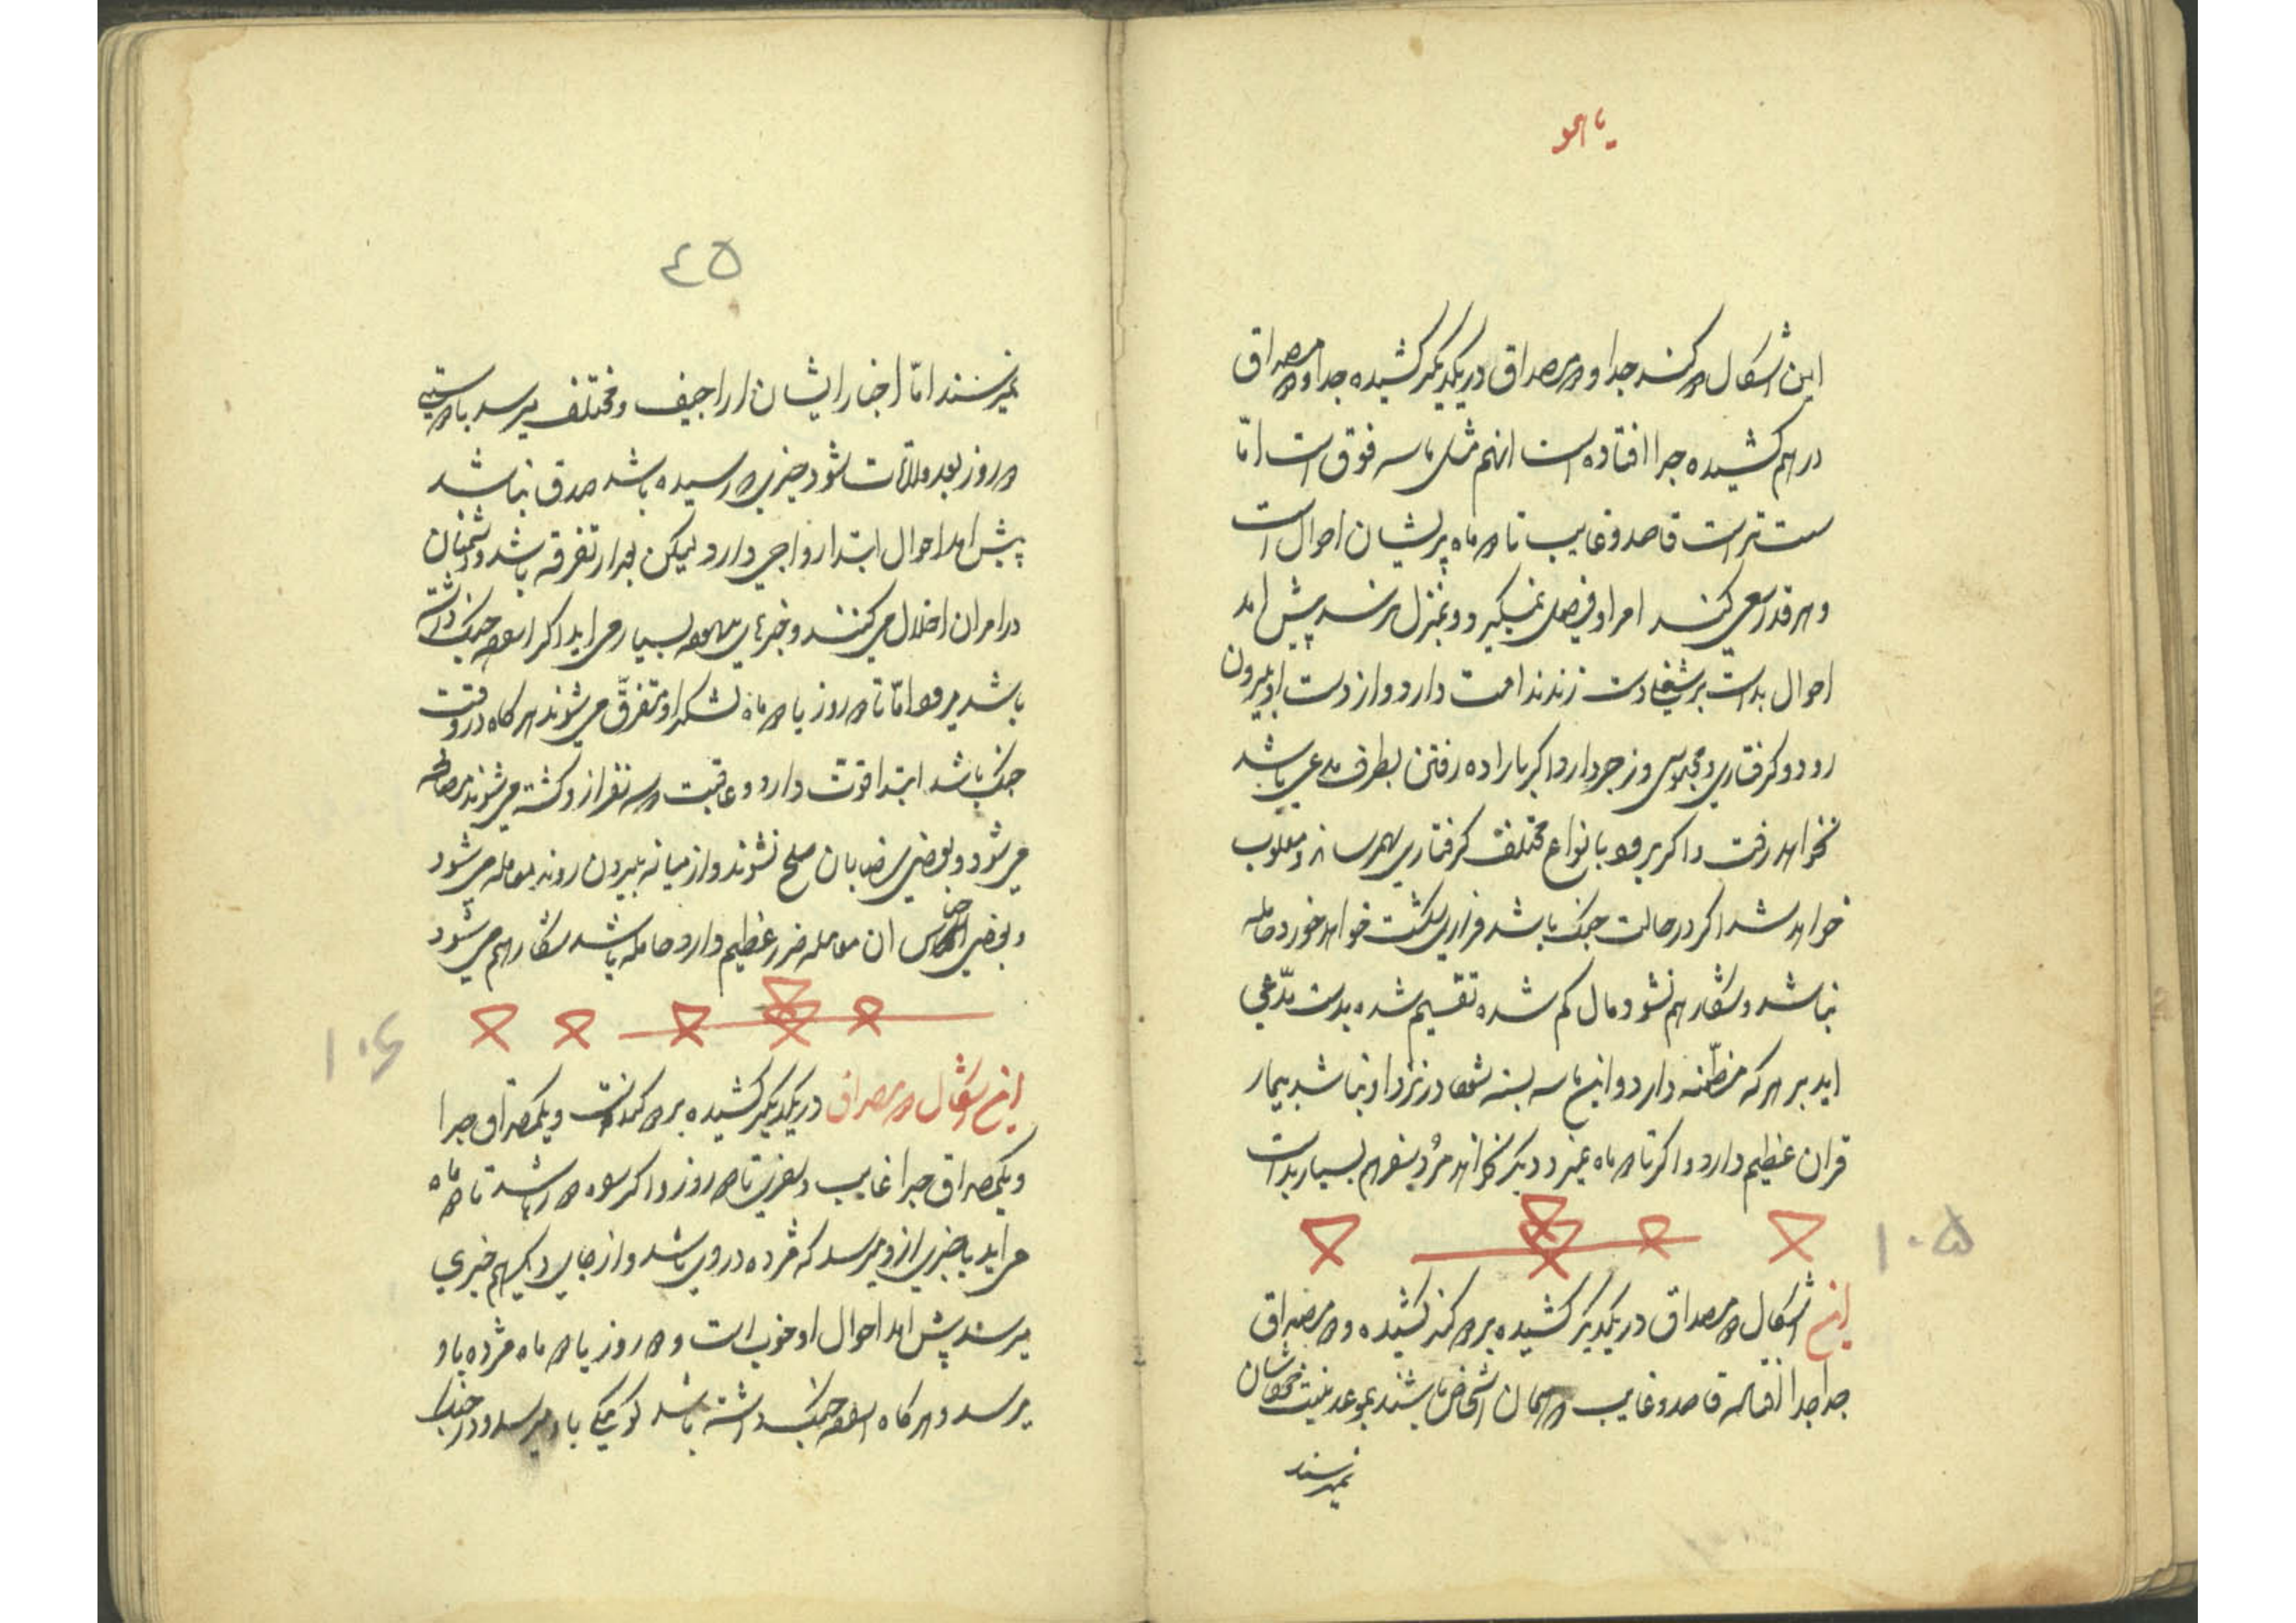 یا هو
این اشکال دو کند جدا و دو مصداق در یکدیگر کشیده جدا و دو مصداق
در هم کشیده جدا افتاده است انهم مثل ماسه فوق است امّا
سست تر است قاصد و غایب تا دو ماه پریشان احوال است
و هر قدر سعی کند امر او فیصل نمیگیرد و بمنزل نرسد پیش امد
احوال بد است زند ندامت دارد و از دست او بیرون
رود و گرفتاری و محبوسی و زجر دارد اگر باراده رفتن بطرف مدعی باشد
نخواهد رفت و اگر برود بانواع مختلف گرفتاری بهمرساند و مغلوب
خواهد شد اگر در حالت جنک باشد فراری شکست خواهد خورد حامله
نباشد و شکار هم نشود مال کم شده تقسیم شده بدست مدّعی
اید بر هر که مظنّه دارد و این ماسه بسته شود در نزد او نباشد بیمار
قران عظیم دارد و اگر تا دو ماه نمیرد دیگر نخواهد مُرد سفر هم بسیار بد است
۱۰۵
این اشکال دو مصداق در یکدیگر کشیده بر دو کند کشیده و دو مصداق
جدا جدا قاصد و غایب و مهمان اشخاص باشند بموعد
نمیرسند
٤٥
نمیرسند امّا اخبار ایشان اراجیف و مختلف میرسد با دویستی
دو روز بعد ملاقات شود خبری که رسیده باشد صدق نباشد
پیش امد احوال ابتدا رواجی دارد لیکن بعد از تفرقه باشد و دشمنان
در امر ان اخلال می کنند و خبرهای بسیار می اید اگر اراده جنک داشته
باشد میرود امّا تا دو روز یا دو ماه لشکر او متفرّق می شوند هر کاه در وقت
جنک باشد ابتدا قوّت دارد و عاقبت دو سه نفر از او کشته می شوند مصالحه
می شود و بعضی بصلح نشوند و از میانه بیرون روند معامله می شود
و بعضی اجناس ان معامله ضرر عظیم دارد حامله باشد شکار هم می شود
۱۰۶
این اشکال دو مصداق در یکدیگر کشیده بر دو کند است و یکمصداق جدا
و یکمصداق جدا غایب و سفری تا دو روز و اگر باشد تا دو ماه
می اید یا خبری از او میرسد که مژده در وی باشد و از جای دیگر هم خبری
میرسد پیش امد احوال او خوب است و دو روز یا دو ماه مژده باو
میرسد و هر کاه اراده جنک داشته باشد کومکی باو میرسد و در جنک